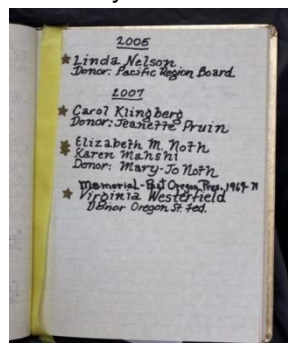 2005
Linda Nelson
Donor: Pacific Region Board
2007
Carol Klingberg
Donor: Jeanette Pruin
Elizabeth M. Noth
Karen Manshi
Donor: Mary-Jo Noth
Memorial - Past Oregon Pres. 1969-71
Virginia Westerfield
Donor Oregon St. Fed.